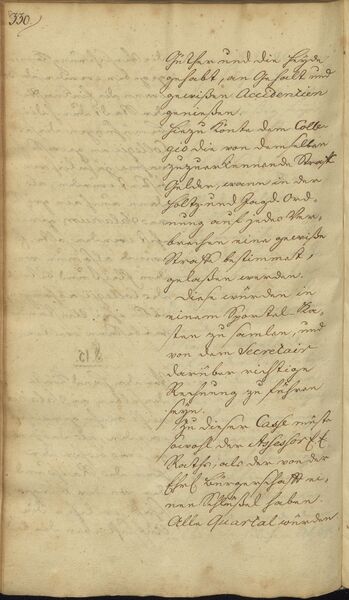 330
Güther und die Heyde
gehabt, an Gehalt und
gewißen Accidentien
genießen.
Hiezu könte dem Colle-
gio die von demselben
zuzuerkennende Straff
Gelder, wann in der
Holtz und Jagd Ord-
nung auf jedes Ver-
brechen eine gewiße
Straffe bestimmet,
gelaßen werden.
Diese würden in
einem Sportel-Ka-
sten zu samlen, und
von dem Secretair
darüber richtige
Rechnung zu führen
seyn.
Zu dieser Casse müste
sowohl der Assessor E. E.
Raths, als der von der
Ehrl. Bürgerschafft ei-
nen Schlüßel haben.
Alle Quartal würden